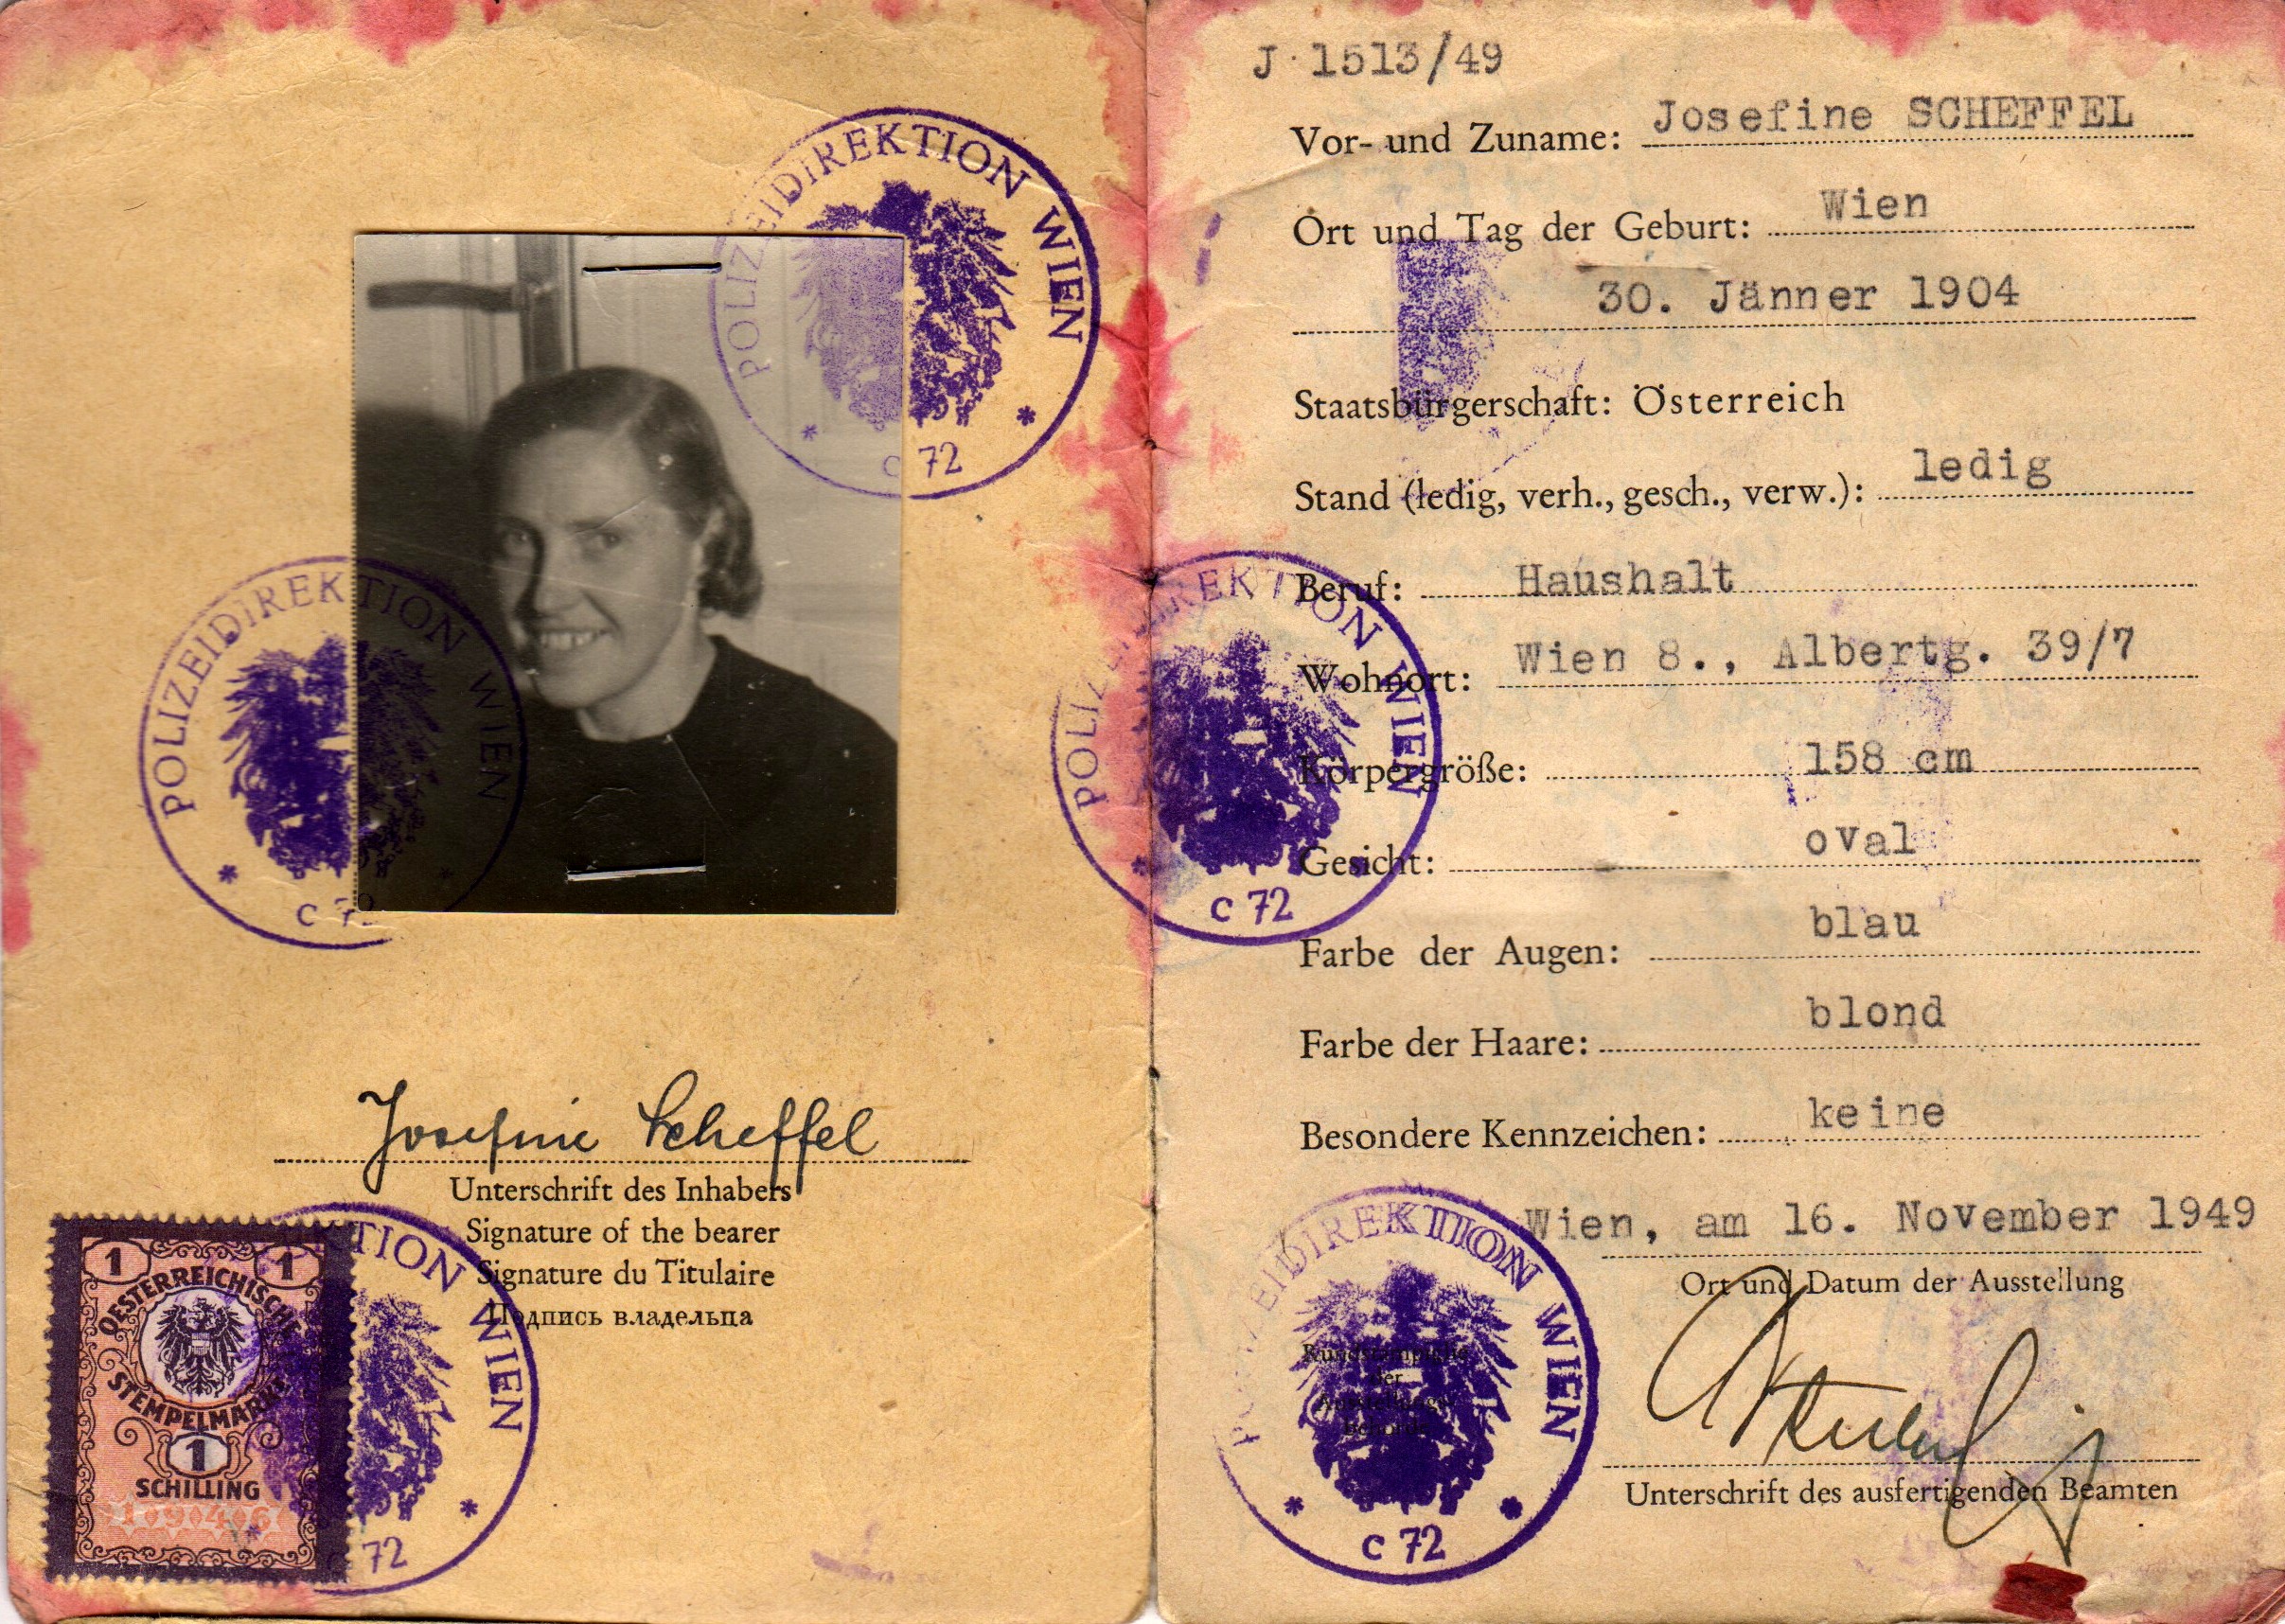 POLIZEIDIREKTION WIEN
C 72
POLIZEIDIREKTION WIEN
Josefine Scheffel
Unterschrift des Inhabers
Signature of the bearer
Signature du Titulaire
Подпись владельца
1 1
OESTERREICHISCHE
STEMPELMARKE
1
SCHILLING
1946
KTION WIEN
72
J 1513/49
Vor- und Zuname: Josefine SCHEFFEL
Ort und Tag der Geburt: Wien
30. Jänner 1904
Staatsbürgerschaft: Österreich
Stand (ledig, verh., gesch., verw.): ledig
Beruf: Haushalt
Wohnort: Wien 8., Albertg. 39/7
Körpergröße: 158 cm
Gesicht: oval
Farbe der Augen: blau
Farbe der Haare: blond
Besondere Kennzeichen: keine
POLIZEIDIREKTION WIEN
C 72
Wien, am 16. November 1949
Ort und Datum der Ausstellung
POLIZEIDIREKTION WIEN
Rundstampiglie
der
Ausstellungs-
behörde
C 72
Unterschrift des ausfertigenden Beamten